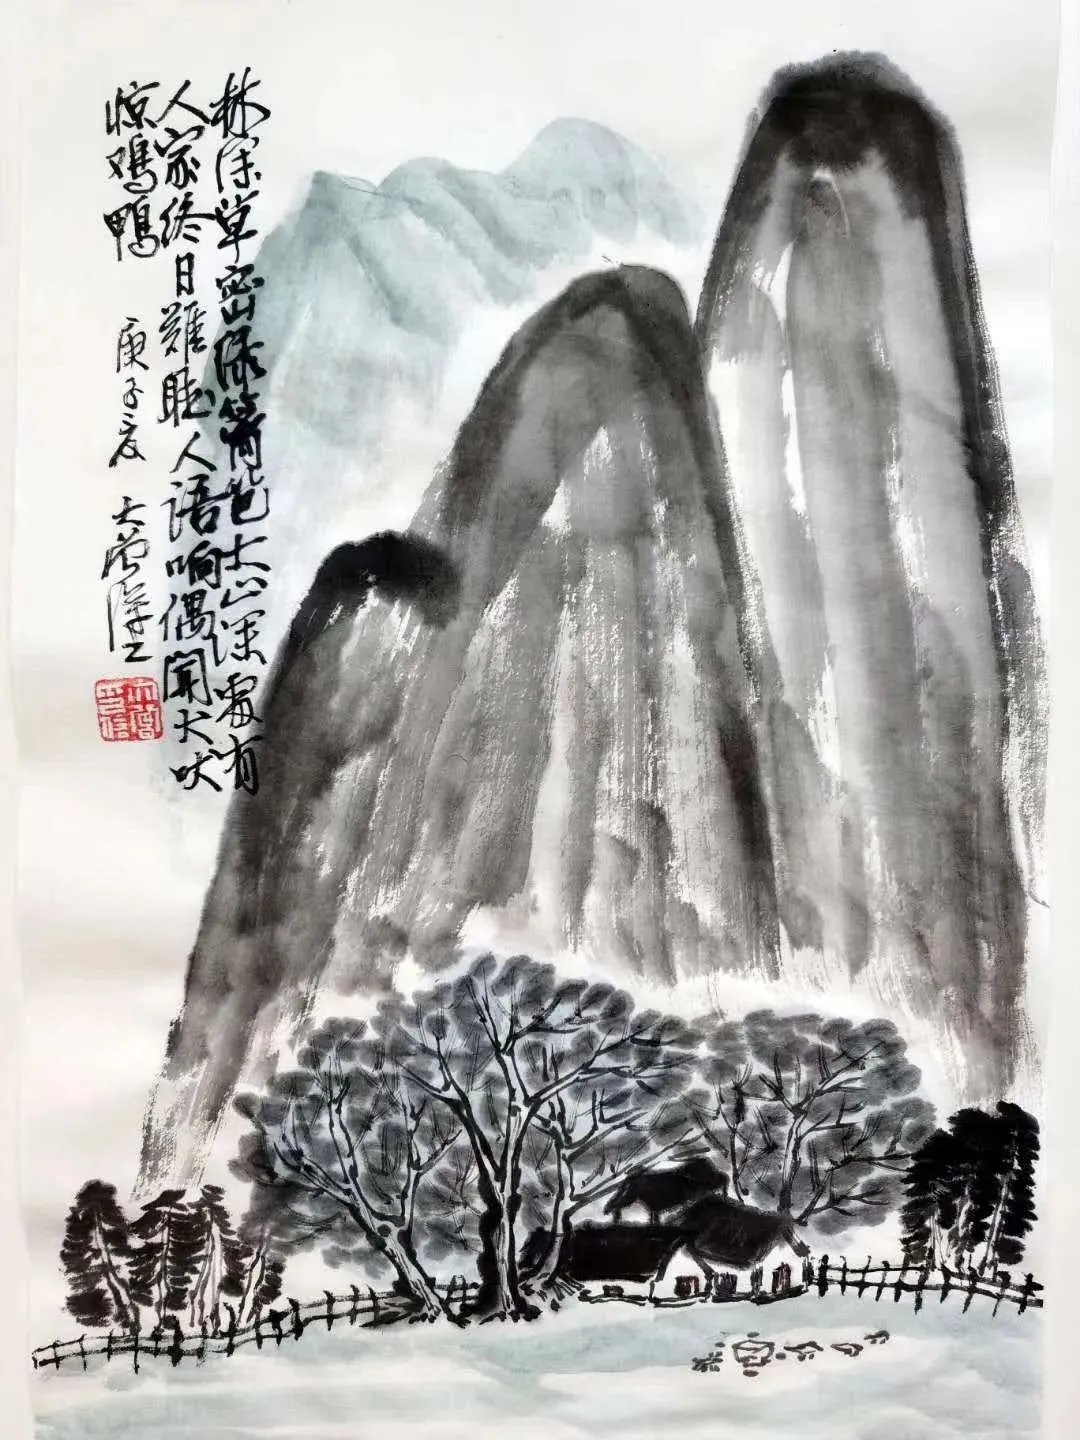 林深草密绿篱笆大山深處有
人家终日難聴人语响偶闻犬吠
惊鸡鸭
庚子夏